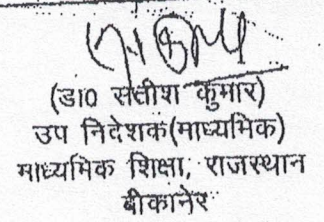 (डा0 सतीश कुमार)
उप निदेशक(माध्यमिक)
माध्यमिक शिक्षा, राजस्थान
बीकानेर